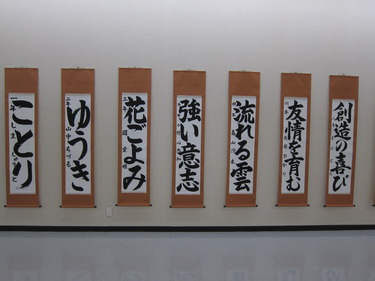 ことり
ゆうき
花ごよみ
強い意志
流れる雲
友情を育む
創造の喜び